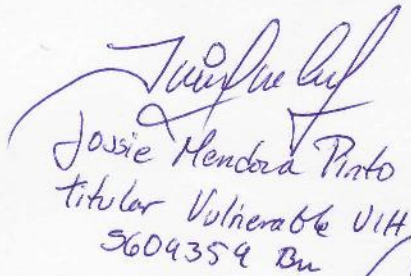 Jossie Mendoza Pinto
titular Vulnerable VIH
5604359 Bn